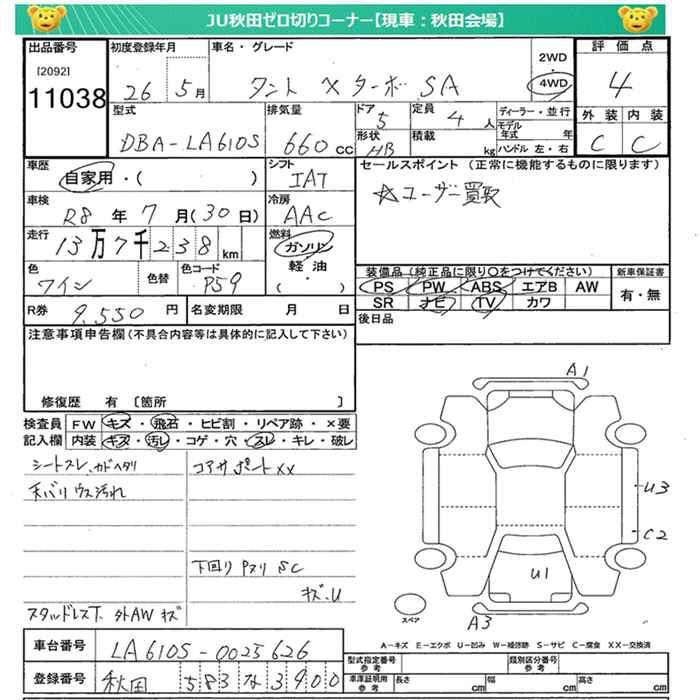 JU秋田ゼロ切りコーナー【現車：秋田会場】
出品番号 初度登録年月 車名・グレード 2WD 4WD 評価点
[2092] 11038 26 5月 タント XターボSA 4
型式 排気量 ドア 定員 ディーラー・並行 外装 内装
DBA-LA610S 660cc 5 4人 モデル年式 年 C C
形状 HB 積載 kg ハンドル 左・右
車歴 自家用・( ) シフト IAT セールスポイント（正常に機能するものに限ります）
☆ユーザー買取
車検 R8年7月(30日) 冷房 AAC
走行 13万7千238km 燃料 ガソリン・軽・油 ( )
色 ワイン 色替 色コード P59
装備品（純正品に限り○をつけてください） 新車保証書
PS PW ABS エアB AW 有・無
SR ナビ TV カワ
R券 9,550円 名変期限 月 日 後日品
注意事項申告欄（不具合内容等は具体的に記入して下さい）
修復歴 有〔箇所 〕
検査員記入欄 FW キズ・飛石・ヒビ割・リペア跡・×要
内装 キズ・汚レ・コゲ・穴・スレ・キレ・破レ
シートスレ、カドヘタリ コアサポートXX
天バリ ウス汚れ
下回り Pスリ SC
キズ、U
スタッドレスT、外AW キズ
A1
U3
C2
U1
スペア
A3
A－キズ E－エクボ U－凹ミ W－補修跡 S－サビ C－腐食 XX－交換済
車台番号 LA610S-0025626
登録番号 秋田 583 な 3900
型式指定番号 参考 類別区分番号 参考
車庫証明用 参考 長さ cm 幅 cm 高さ cm